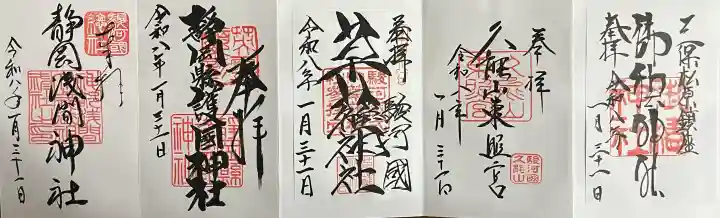 奉拝
静岡浅間神社
令和八年一月三十一日
奉拝
静岡縣護國神社
令和八年一月三十一日
奉拝 駿河國
令和八年一月三十一日
奉拝
久能山東照宮
令和八年
一月三十一日
駿河國
久能山
三保松原鎮座
御穂神社
奉拝 令和八年
一月三十一日